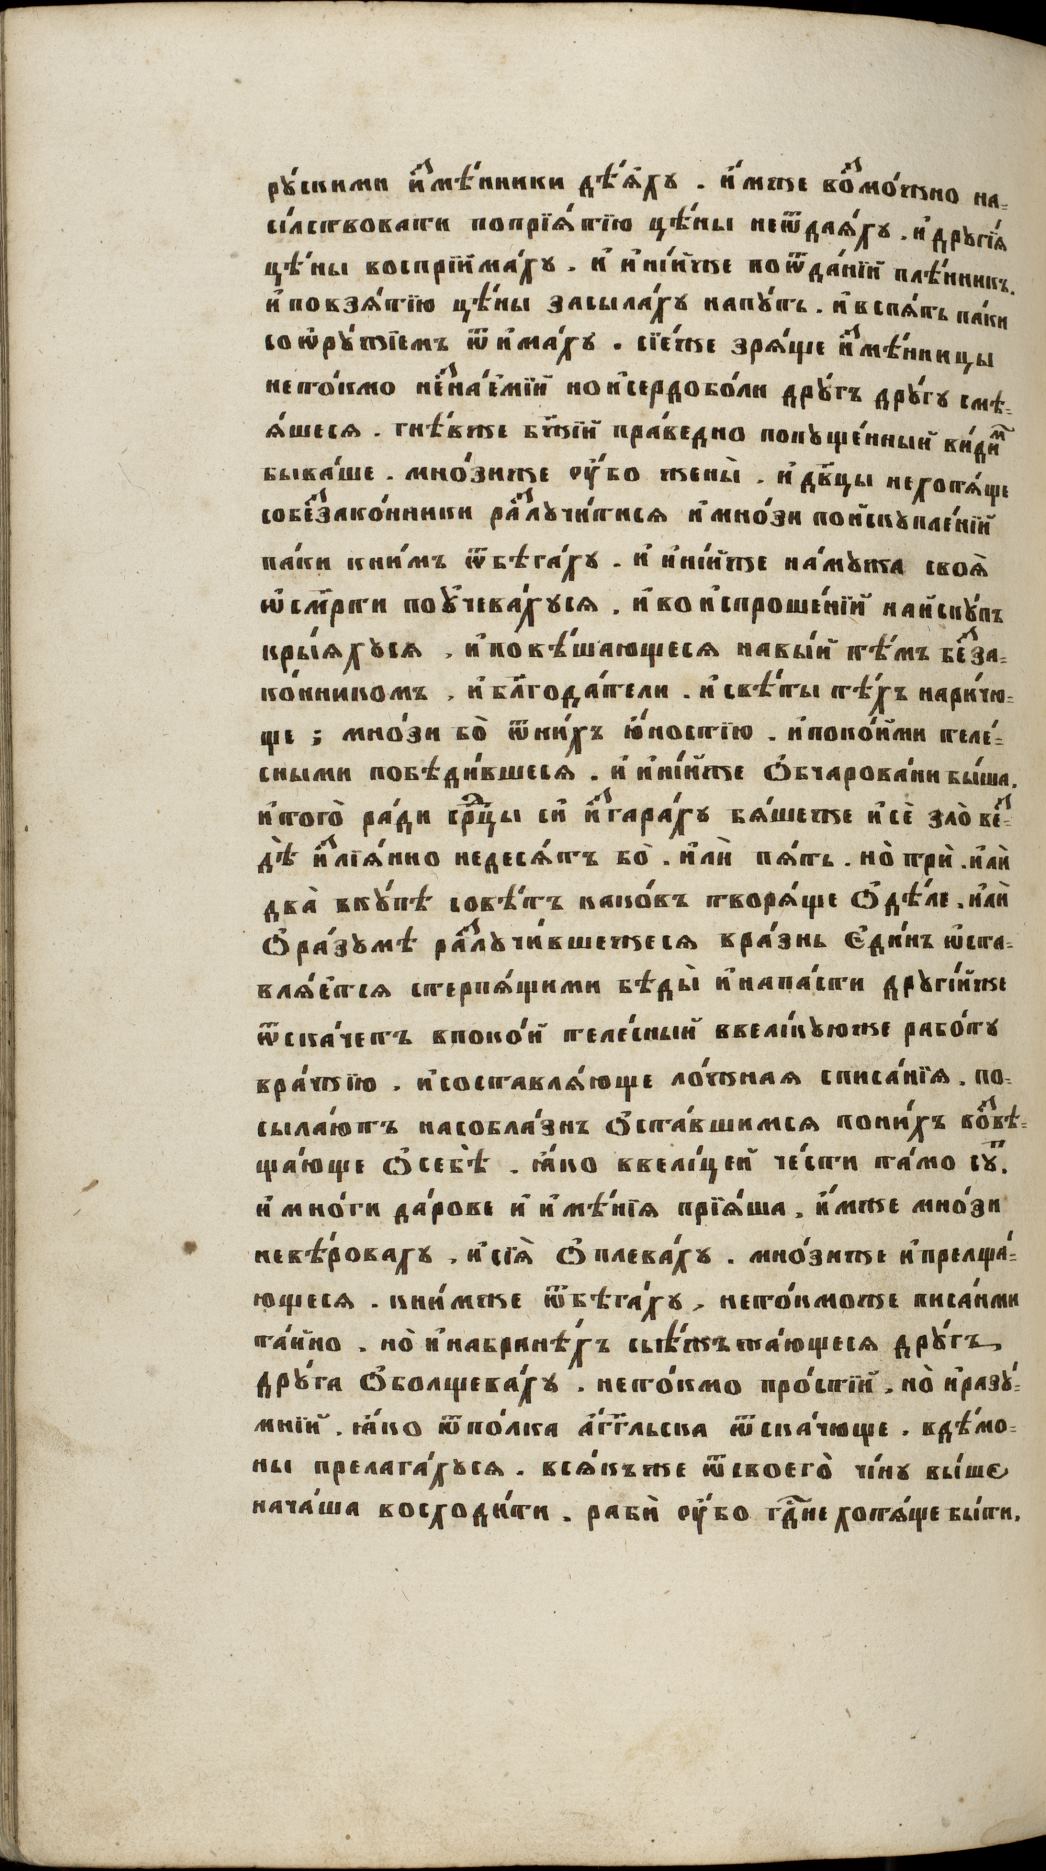 рꙋ́скими и҆зⷨмѣ́нники дѣ́ѧхꙋ . и҆́мже во́змо́жно на=
си́лствовати по прїѧ́тїю цѣ́ны не ѿдаѧ́хꙋ . и҆ дрꙋгі́ѧ
цѣ́ны воспрїйма́хꙋ . и҆ и҆ні́йже по ѿда́нїй плѣ́нникъ.
и҆ по взѧ́тїю цѣ́ны засыла́хꙋ на пꙋ́ть . и҆ вспѧ́ть па́ки
со ѡ҆рꙋ́жїемъ ѿима́хꙋ . сїе́же зрѧ́ще и҆змѣ́нницы
не то́кмо неѕна́емїй но и҆ сердобо́ли дрꙋ́гъ дрꙋ́гꙋ смѣ=
ѧ́шесѧ . гнѣ́вже бж҃їй пра́ведно попꙋще́нный ви́димⷨ
быва́ше . мно́зиже оу҆́бо жены̀ . и҆ дв҃цы не хотѧ́ще
со беззако́нники разлꙋчи́тисѧ и҆ мно́зи по и҆скꙋпле́нїй
па́ки к ни́мъ ѿбѣга́хꙋ . и҆ и҆ні́йже на мꙋ́жа своѧ̀
ѡ҆ см҃рти поꙋчева́хꙋсѧ . и҆ во и҆спроше́нїй на и҆скꙋ́пъ
кры́ѧхꙋсѧ . и҆ повѣ́шающесѧ на вы́и тѣ́мъ безза=
ко́нникомъ . и҆ бл҃года́тели . и҆ свѣ́ты тѣ́хъ нари́чю=
ще ; мно́зи бо̀ ѿ ни́хъ ю҆́ностїю . и҆ поко́йми теле́=
сными побѣди́вшесѧ . и҆ и҆ні́йже ѻ҆бчарова́ни бы́ша.
и҆ того̀ ра́ди ср҃дцы си́ и҆згара́хꙋ бѧ́шеже и҆ сѐ зло̀ вез=
дѣ̀ и҆злїѧ́нно не десѧ́тъ бо̀ . и҆лѝ пѧ́ть . но̀ трѝ . и҆лѝ
два̀ вкꙋ́пѣ совѣ́тъ како́въ творѧ́ще ѻ҆ дѣ́ле . и҆лѝ
ѻ҆ ра́зꙋмѣ разлꙋчи́вшежесѧ вра́знь є҆ди́нъ ѡ҆ста=
влѧ́етсѧ с терпѧ́щими бѣды̀ и҆ напа́сти дрꙋгі́йже
ѿска́четъ в поко́й теле́сный в вели́кꙋюже рабо́тꙋ
вра́жїю . и҆ составлѧ́юще ло́жная списа́нїѧ . по=
сыла́ютъ на собла́знъ ѻ҆ста́вшимсѧ по ни́хъ возвѣ=
ща́юще ѻ҆ себѣ̀ . ꙗ҆́ко в вели́цей че́сти та́мо сꙋ́ть.
и҆ мно́ги да́рове и҆ и҆мѣ́нїѧ прїѧ́ша . и҆́мже мно́зи
не вѣ́ровахꙋ . и҆ сїѧ̀ ѻ҆плева́хꙋ . мно́зиже и҆ прелща́=
ющесѧ . к ни́мже ѿбѣга́хꙋ . не то́кможе писа́нми
та́йно . но̀ и҆ на бранѣ́хъ съѣ́жъжа́ющесѧ дрꙋ́гъ
дрꙋ́га ѻ҆болщева́хꙋ . не то́кмо про́стїй . но̀ и҆ разꙋ́=
мнїй . ꙗ҆́ко ѿ по́лка а҆́гг҃льска ѿска́чюще . в дѣ́мо=
ны прелага́хꙋсѧ . всѧ́къже ѿ своего̀ чи́нꙋ вы́ше
нача́ша восходи́ти . рабѝ оу҆́бо гдⷭ҇не хотѧ́ще бы́ти.